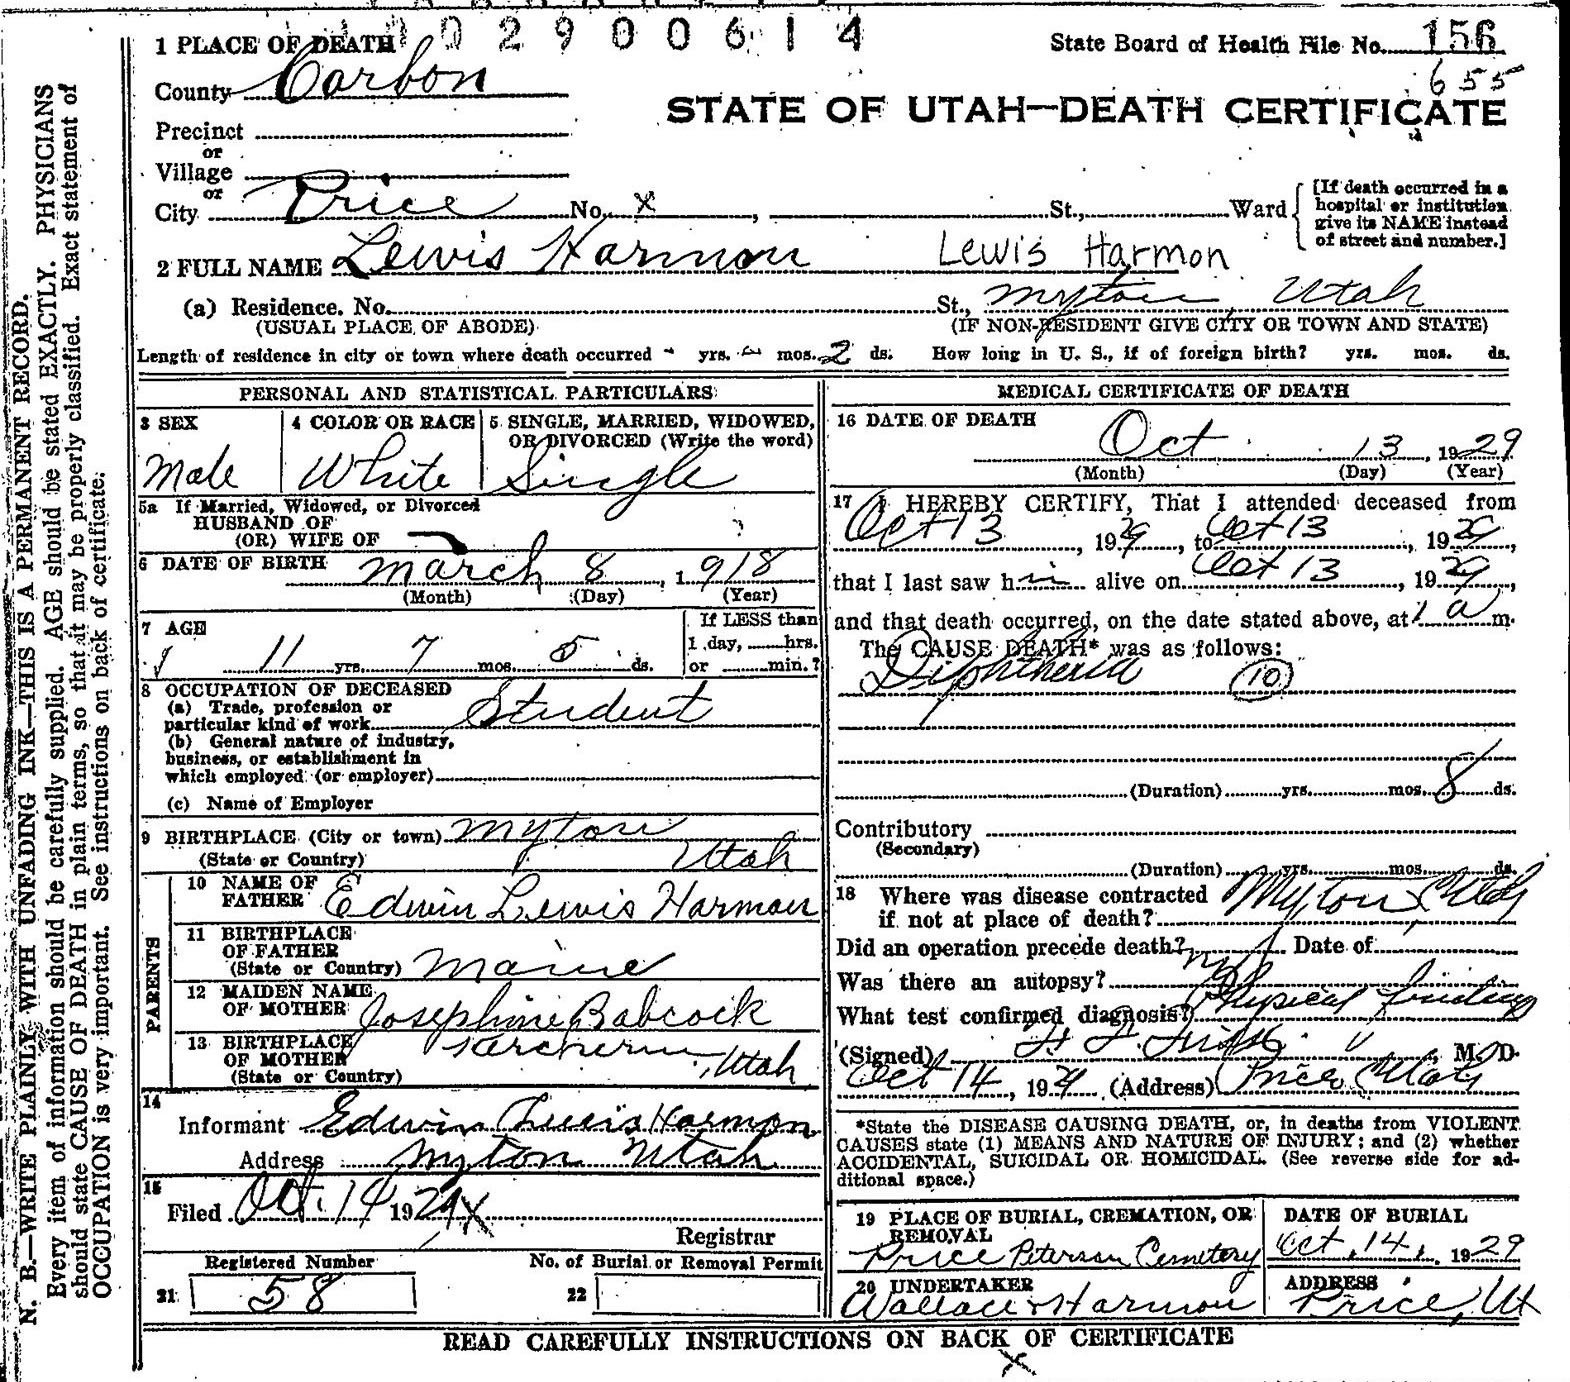 0 2 9 0 0 6 1 4
1 PLACE OF DEATH
State Board of Health File No. 156
655
County Carbon
STATE OF UTAH—DEATH CERTIFICATE
Precinct
or
Village
or
City Price No. x , St., Ward
[If death occurred in a
hospital or institution
give its NAME instead
of street and number.]
2 FULL NAME Lewis Harmon Lewis Harmon
(a) Residence. No. St., Myton, Utah
(USUAL PLACE OF ABODE) (IF NON-RESIDENT GIVE CITY OR TOWN AND STATE)
Length of residence in city or town where death occurred - yrs. - mos. 2 ds. How long in U. S., if of foreign birth? yrs. mos. ds.
PERSONAL AND STATISTICAL PARTICULARS
3 SEX
Male
4 COLOR OR RACE
White
5 SINGLE, MARRIED, WIDOWED,
OR DIVORCED (Write the word)
Single
5a If Married, Widowed, or Divorced
HUSBAND OF
(OR) WIFE OF
6 DATE OF BIRTH March 8, 1918
(Month) (Day) (Year)
7 AGE
11 yrs. 7 mos. 5 ds.
If LESS than
1 day, hrs.
or min.?
8 OCCUPATION OF DECEASED
(a) Trade, profession or
particular kind of work Student
(b) General nature of industry,
business, or establishment in
which employed (or employer)
(c) Name of Employer
9 BIRTHPLACE (City or town) Myton
(State or Country) Utah
PARENTS
10 NAME OF
FATHER Edwin Lewis Harmon
11 BIRTHPLACE
OF FATHER
(State or Country) Maine
12 MAIDEN NAME
OF MOTHER Josephine Babcock
13 BIRTHPLACE
OF MOTHER Utah
(State or Country)
14
Informant Edwin Lewis Harmon
Address Myton Utah
15
Filed Oct. 14 1929 x
Registrar
Registered Number
21 58
No. of Burial or Removal Permit
22
MEDICAL CERTIFICATE OF DEATH
16 DATE OF DEATH
Oct 13, 1929
(Month) (Day) (Year)
17 I HEREBY CERTIFY, That I attended deceased from
Oct 13, 1929, to Oct 13, 1929,
that I last saw him alive on Oct 13, 1929,
and that death occurred, on the date stated above, at 1 a m.
The CAUSE DEATH* was as follows:
Diphtheria 10
(Duration) yrs. mos. 8 ds.
Contributory
(Secondary)
(Duration) yrs. mos. ds.
18 Where was disease contracted
if not at place of death? Myton, Utah
Did an operation precede death? no Date of
Was there an autopsy? no
What test confirmed diagnosis? Physical findings
(Signed) , M. D.
Oct 14, 1929 (Address) Price Utah
*State the DISEASE CAUSING DEATH, or, in deaths from VIOLENT
CAUSES state (1) MEANS AND NATURE OF INJURY; and (2) whether
ACCIDENTAL, SUICIDAL OR HOMICIDAL. (See reverse side for ad-
ditional space.)
19 PLACE OF BURIAL, CREMATION, OR
REMOVAL
Price Peterson Cemetery
DATE OF BURIAL
Oct. 14, 1929
20 UNDERTAKER
Wallace & Harmon
ADDRESS
Price, Ut
READ CAREFULLY INSTRUCTIONS ON BACK OF CERTIFICATE
x
N. B.—WRITE PLAINLY WITH UNFADING INK—THIS IS A PERMANENT RECORD.
Every item of information should be carefully supplied. AGE should be stated EXACTLY. PHYSICIANS
should state CAUSE OF DEATH in plain terms, so that it may be properly classified. Exact statement of
OCCUPATION is very important. See instructions on back of certificate.